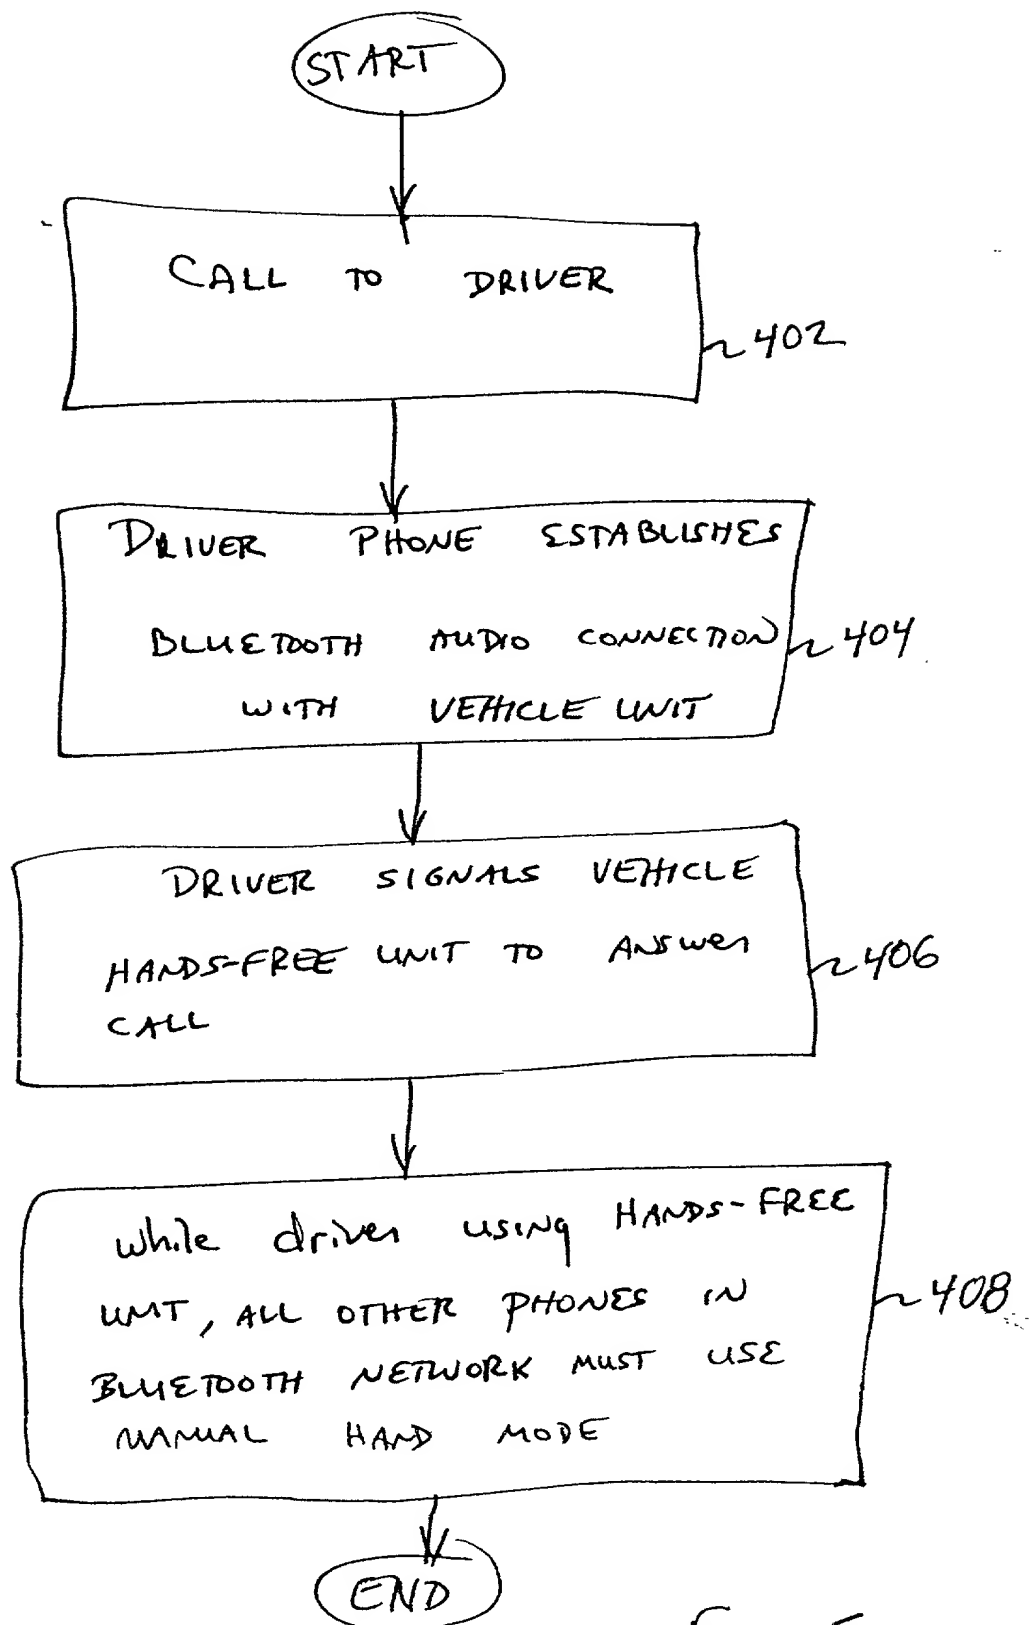 START
CALL TO DRIVER
402
DRIVER PHONE ESTABLISHES
BLUETOOTH AUDIO CONNECTION
404
WITH VEHICLE UNIT
DRIVER SIGNALS VEHICLE
HANDS-FREE UNIT TO ANSWER
406
CALL
while driver using HANDS-FREE
UNIT, ALL OTHER PHONES IN
408
BLUETOOTH NETWORK MUST USE
MANUAL HAND MODE
END